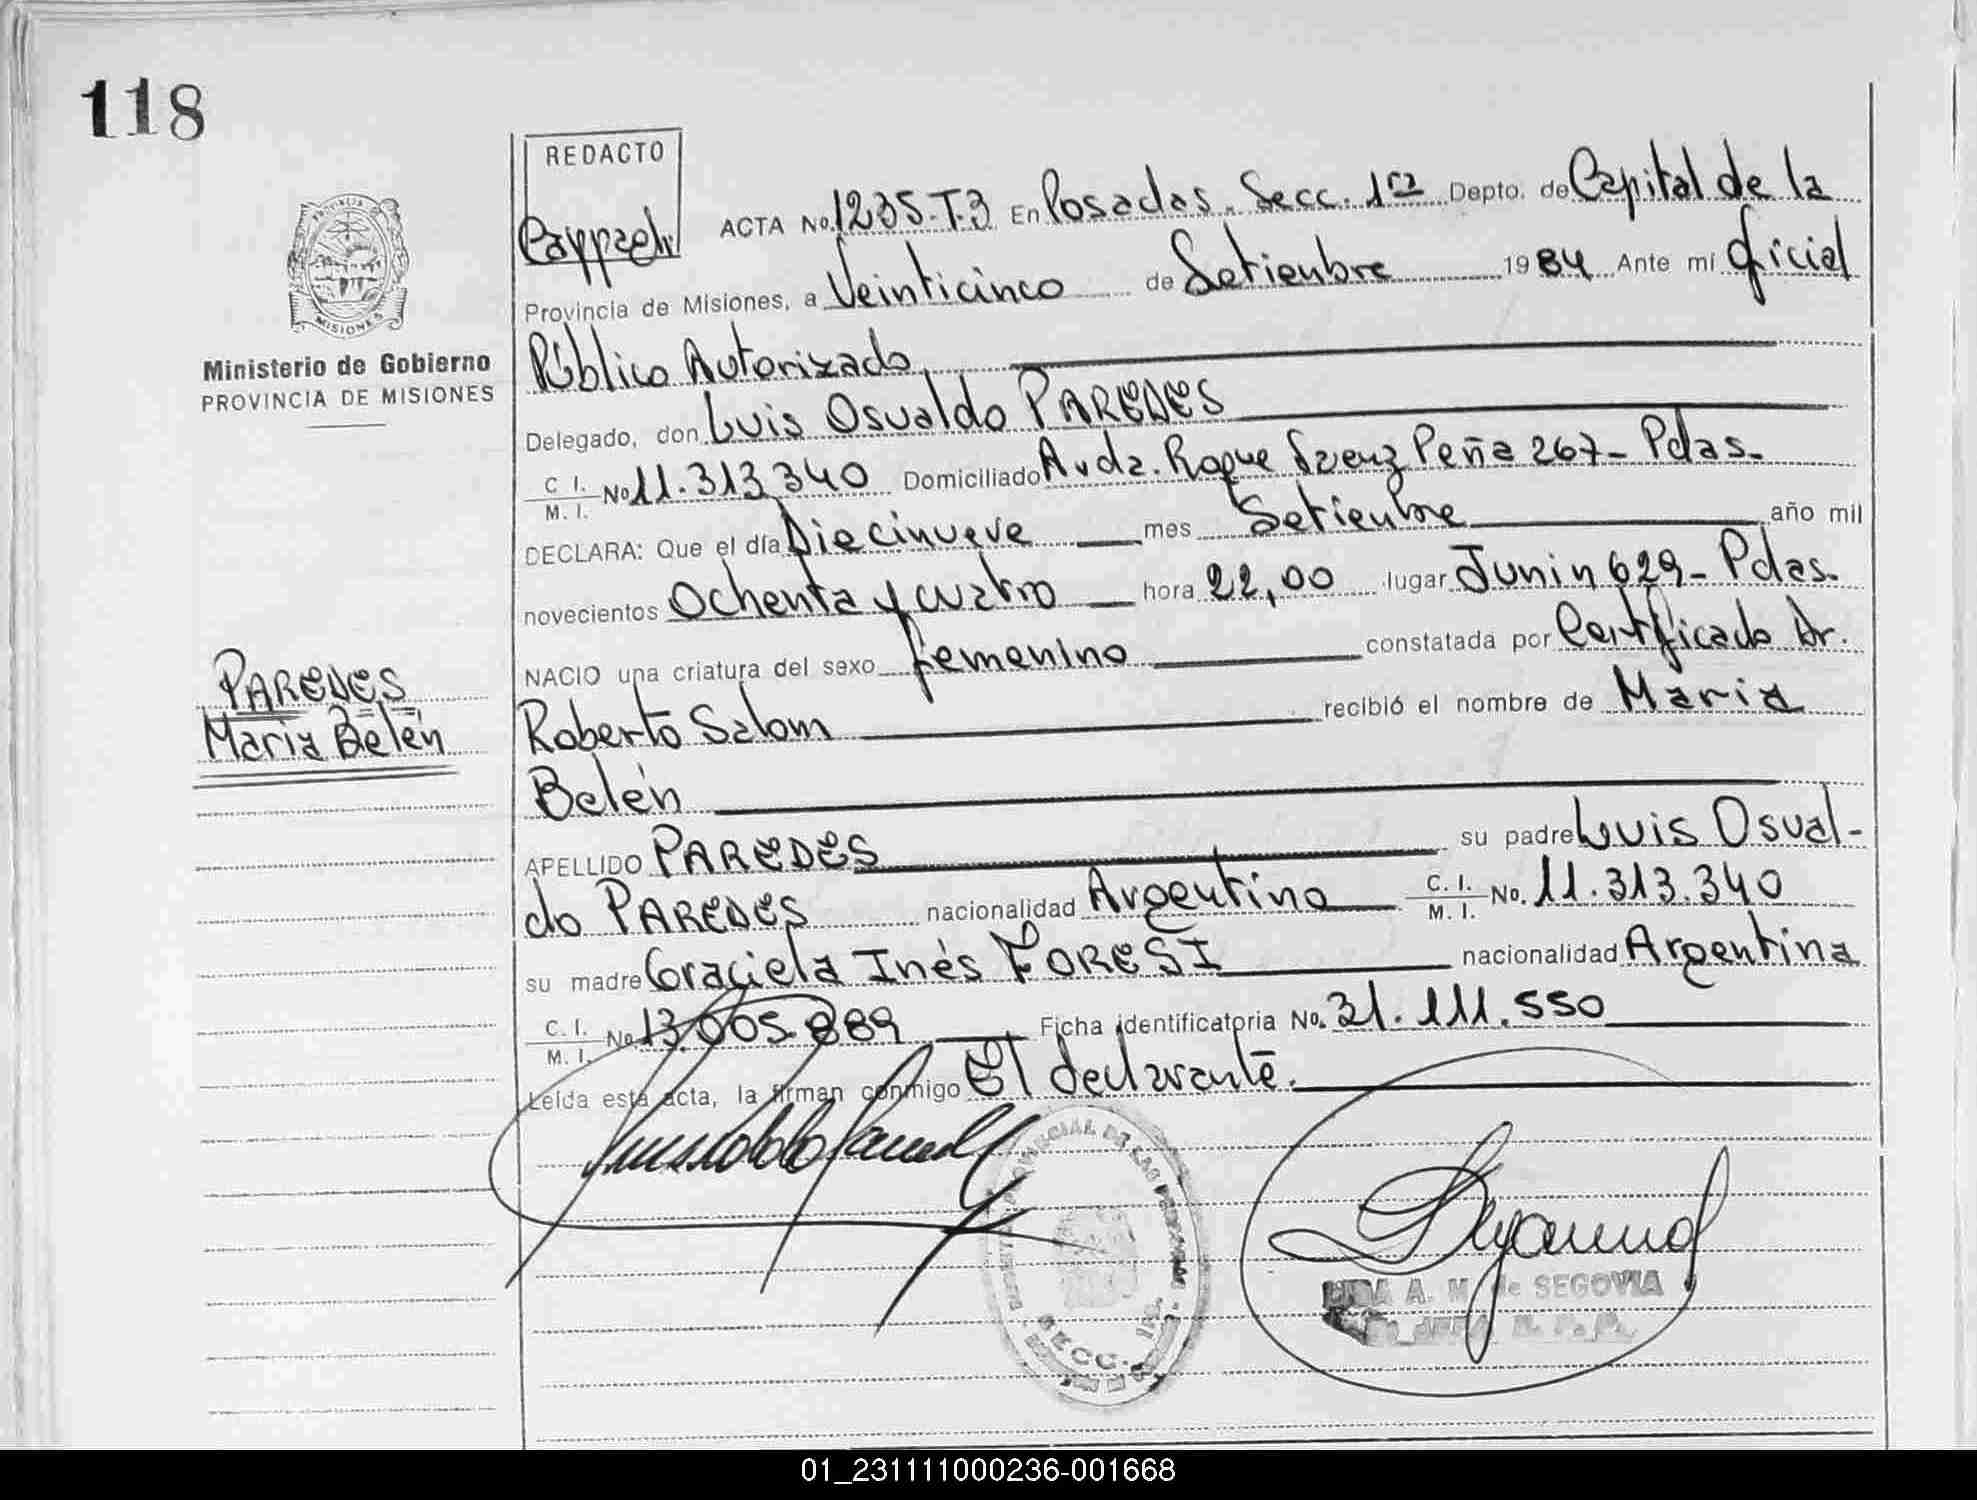 118
REDACTO
ACTA No. 1235-T.3 En Posadas. Secc. 1ra Depto. de Capital de la
Provincia de Misiones, a Veinticinco de Setiembre 1984 Ante mí Oficial
Ministerio de Gobierno
PROVINCIA DE MISIONES
MISIONES
Público Autorizado
Delegado, don Luis Osvaldo PAREDES
C. I. M. I. No 11.313.340 Domiciliado Avda. Roque Saenz Peña 267- Pdas-
DECLARA: Que el día Diecinueve mes Setiembre año mil
novecientos Ochenta y cuatro hora 22,00 lugar Junin 629- Pdas-
NACIO una criatura del sexo femenino constatada por Certificado Dr.
PAREDES
Maria Belén
Roberto Salom recibió el nombre de Maria
Belén
APELLIDO PAREDES su padre Luis Osval-
do PAREDES nacionalidad Argentino C. I. M. I. No. 11.313.340
su madre Graciela Inés FORESI nacionalidad Argentina
C. I. M. I. No 13.005.889 Ficha identificatoria No. 31.111.550
Leída esta acta, la firman conmigo El declarante.
A. M. de SEGOVIA
SECC.
01_231111000236-001668